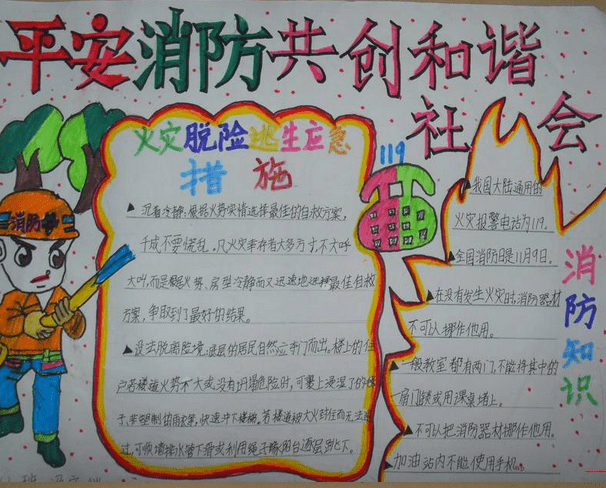 平安消防共创和谐
社会
火灾脱险逃生应急
措施
119
消防
▲沉着冷静,根据火势实情选择最佳的自救方案,
千成不要慌乱。凡火幸存者大多方寸,不大呼
大叫,而是根据火势、房型冷静而又迅速地选择最佳自救
方案,争取到了最好的结果。
的居民自然应夺门而出。楼上的住
户若楼道火势不大或没有坍塌危险时,可裹上浸湿了的
快速冲下楼梯。若楼道被大火封住而无法
通过,可顺墙排水管下滑或利用绳子缘阳台逐层
▲我国大陆通用的
火灾报警电话为119。
▲全国消防日是11月9日。
▲在没有发生火灾时,消防器材
不可以挪作他用。
▲一般教室都有两门,不能将其中的
一扇门锁或用课桌堵上。
▲不可以把消防器材挪作他用。
▲加油站内不能使用手机。
消防知识